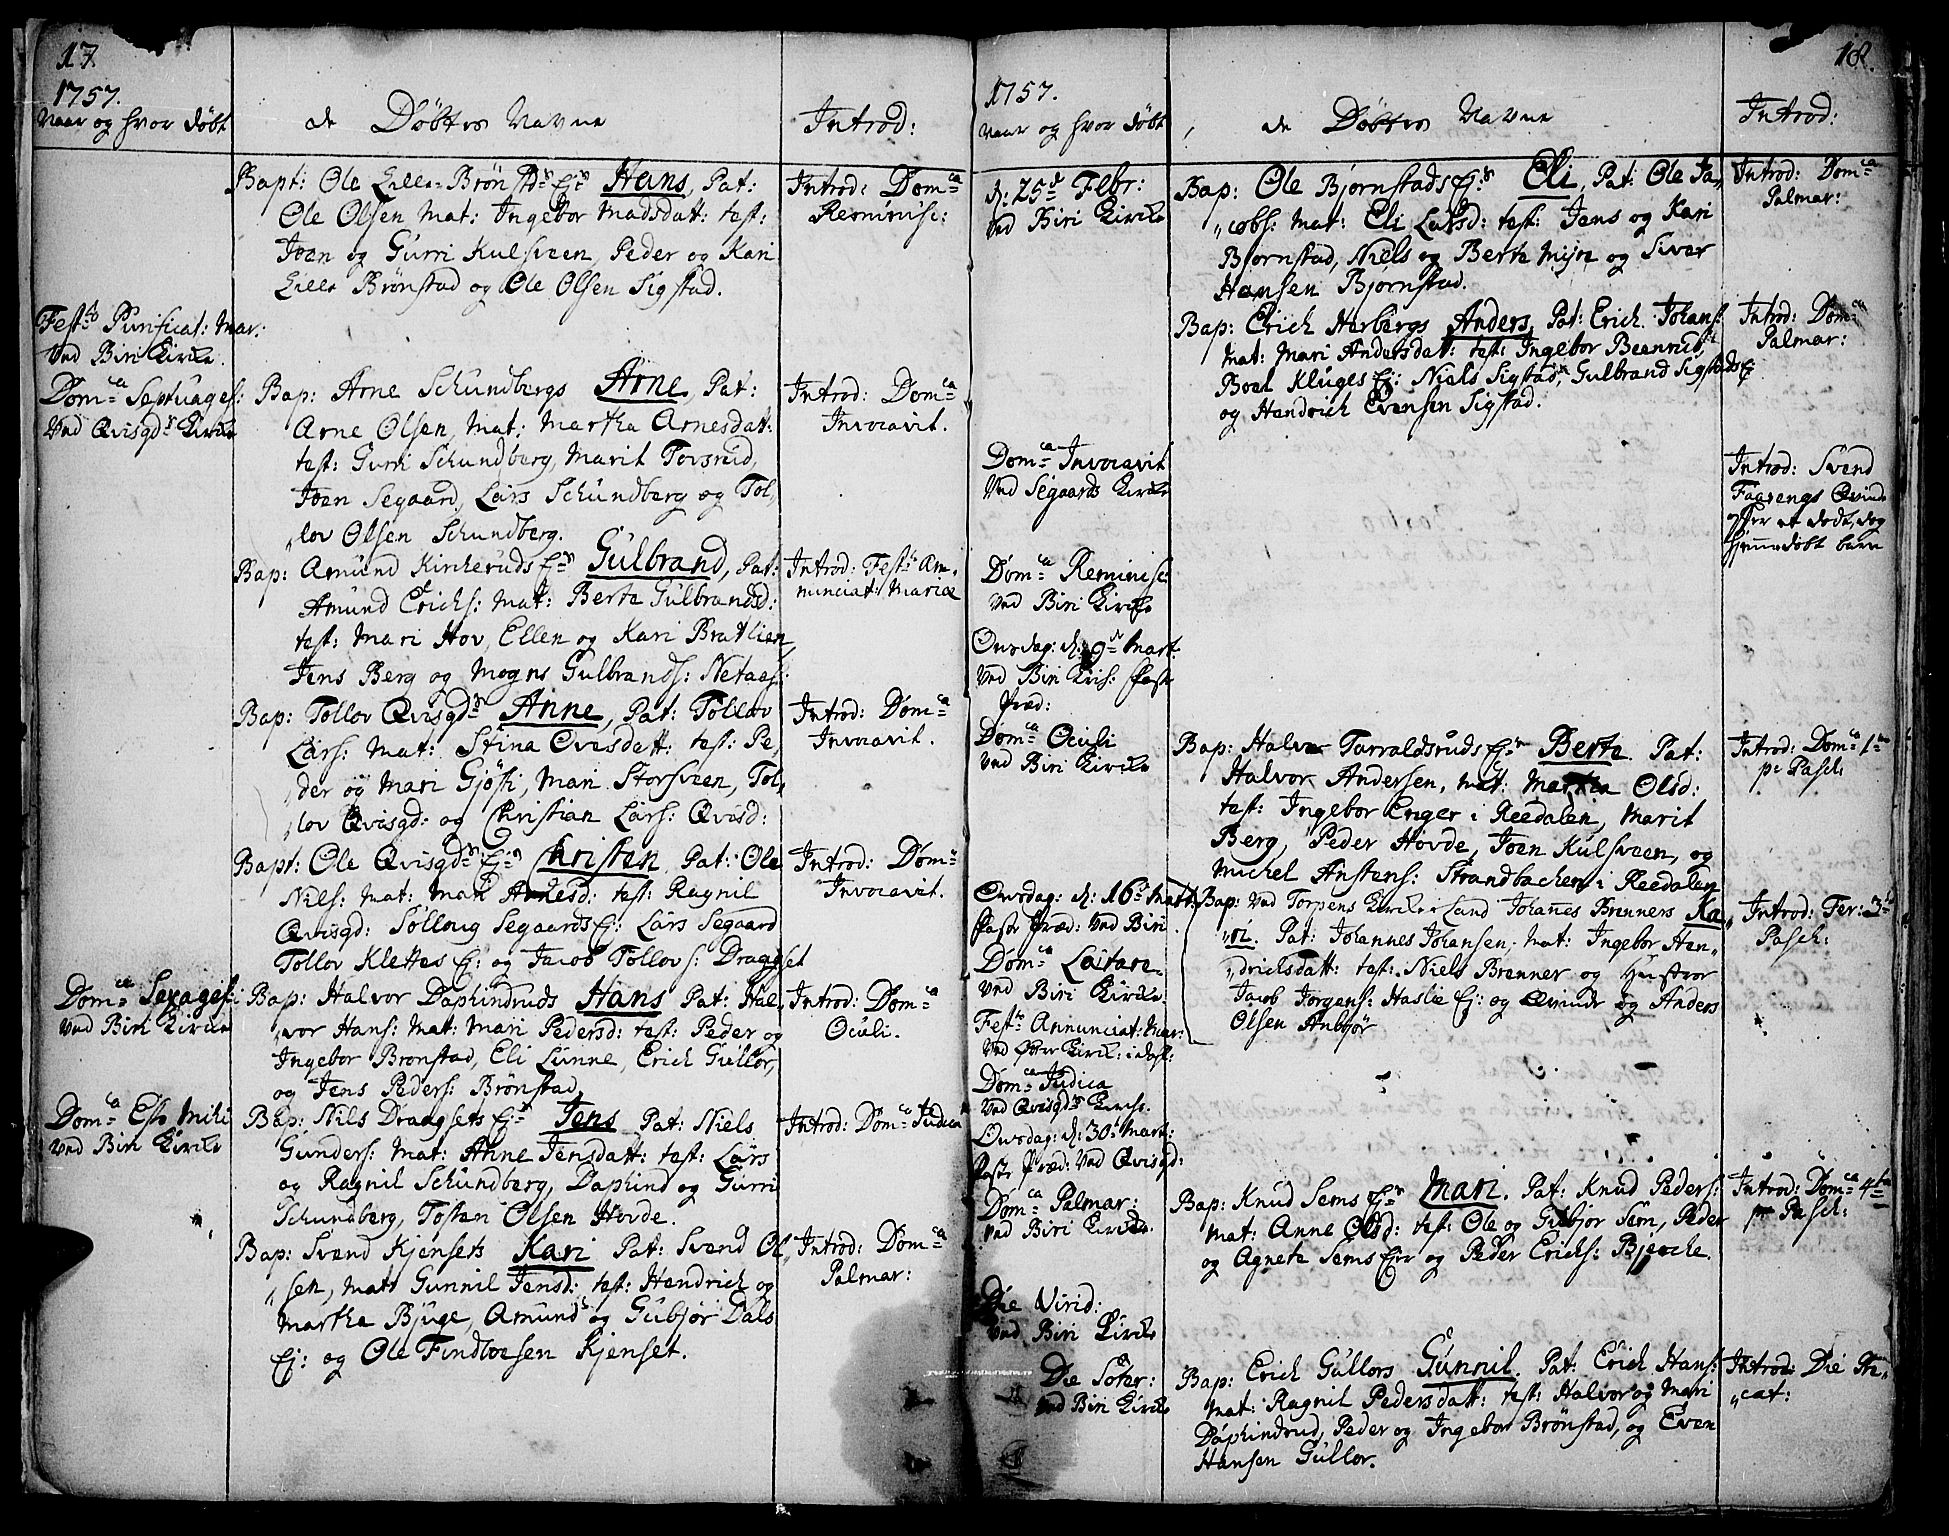 17.
1757.
Naar og hvor døbt
de Døbtes Navne
Introd:
Bapt: Ole Lille-Brønstds Ejrs Hans, Pat:
Ole Olsen Mat: Ingebor Madsdatt: test:
Joen og Gurri Kulsveen, Peder og Kari
Lille Brønstad og Ole Olsen Sigstad.
Introd: Domca
Reminisc:
Festo Purificat: Mar:
Ved Biri Kircke.
Domca Septuages:
Ved Qvisgds Kircke
Bap: Arne Schundbergs Arne, Pat:
Arne Olsen, Mat: Martha Arnesdatt:
test: Gurri Schundberg, Marit Tovsrud,
Joen Segaard, Lars Schundberg og Tol,
„lov Olsen Schundberg.
Introd: Domca
Invocavit.
Bap: Amund Kirkeruds Ejrs Gulbrand, Pat:
Amund Erichs: Mat: Berte Gulbrandsd:
test: Mari Hov, Ellen og Kari Bratlien
Jens Berg og Mogns Gulbrands: Netaas:
Introd: Festo An,
nunciat: Mariæ
Bap: Tollov Qvisgds Anne, Pat: Tollov
Lars: Mat: Stina Evesdatt: test: Pe,
„der og Mari Gjøsti, Mari Storsveen, Tol,
„lov Qvisgd: og Christian Lars: Qvisd:
Introd: Domca
Invocavit.
Bapt: Ole Qvisgds Ejrs Christen, Pat: Ole
Nils: Mat: Mari Annesd: test: Ragnil
Qvisgd: Sølloug Segaards Ej: Lars Segaard
Tollov Klettes Ej: og Jacob Tollovs: Dragset
Introd: Domca
Invocavit.
Domca Sexages:
Ved Biri Kircke
Bap: Halvor Daphindruds Hans Pat: Hal„
„vor Hans: Mat: Mari Pedersd: test: Peder og
Ingebor Brønstad, Eli Lunne, Erich Gullor,
og Jens Peders: Brønstad
Introd: Domca
Oculi.
Domca Esto Mihi
Ved Biri Kircke
Bap: Nils Dragsets Ejrs Jens Pat: Niels
Gunders: Mat: Anne Jensdatt: test: Lars
og Ragnil Schundberg, Daphind og Gurri
Schundberg, Tosten Olsen Hovde.
Introd: Domca Judica
Bap: Svend Kjensets Kari Pat: Svend Ol,
„sen, Mat: Gunnil Jensd: test: Hendrich og
Martha Bjuge, Amund og Gubjør Dals
Ej: og Ole Findloesen Kjenset.
Introd: Domca
Palmar:
18.
1757.
Naar og hvor døbt
de Døbtes Navne
Introd:
d: 25de Febr:
Ved Biri Kircke
Bap: Ole Bjørnstads Ejrs Eli, Pat: Ole Ja,
„cobs: Mat: Eli Larsd: test: Jens og Kari
Bjørnstad, Niels og Berte Mjøe og Siver
Hansen Bjørnstad.
Introd: Domca
Palmar:
Bap: Erich Herbergs Anders, Pat: Erich Johans:
Mat: Mari Andersdat: test: Ingebor Beenrud,
Boel Kluges Ej: Niels Sigstad, Gulbrand Sigstads Ej:
og Hendrich Evensen Sigstad.
Introd: Domca
Palmar:
Domca Invocavit
Ved Segaards Kircke
Introd: Svend
Faarengs Qvinde
efter et dødt, dog
hjemmedøbt barn
Domca Reminisc:
Ved Biri Kircke
Onsdag: d: 9de Mart:
Ved Biri Kirch: Faste
Præd:
Domca Oculi
Ved Biri Kircke
Bap: Halvor Torvaldsruds Ejrs Berte. Pat:
Halvor Andersen, Mat: Martha Olsd:
test: Ingebor Enger i Reedalen, Marit
Berg, Peder Hovde, Joen Kulsveen, og
Michel Anstens: Strandbachen i Reedalen
Introd: Domca 1ma
p: Pasch:
Onsdag: d: 16de Mart:
Faste Præd: Ved Biri.
Bap: Ved Torpens Kircke i Land Johannes Brenners Ka„
„ri. Pat: Johannes Johansen, Mat: Ingebor Hen„
„drichsdatt: test: Niels Brenner og Hustroe
Jacob Jørgens: Haslie Ej: og Qvinde og Anders
Olsen Anbjør
Introd: Fer: 3tia
Pasch:
Domca Lætare
Ved Biri Kircke.
Festo Annunciat: Mar:
Ved Østre Kirck: i Land:
Domca Judica
Ved Qvisgds Kirch.
Onsdag: d: 30te Mart:
Faste Præd: Ved Qvisgd:
Domca Palmar:
Ved Biri Kircke.
Bap: Knud Sems Ejrs Mari. Pat: Knud Peders:
Mat: Anne Olsd: test: Ole og Gubjør Sem, Peder
og Agnete Sems Ejer og Peder Erichs: Bjerche.
Introd: Domca 4ta
p: Pasch:
Die Virid:
Ved Biri Kircke
Die Soter:
Ved Biri Kircke
Bap: Erich Gullors Gunnil. Pat: Erich Hans:
Mat: Ragnil Pedersdatt: test: Halvor og Mari
Daphindrud, Peder og Ingebor Brønstad, og Even
Hansen Gullor.
Introd: Die Pre„
„cat: